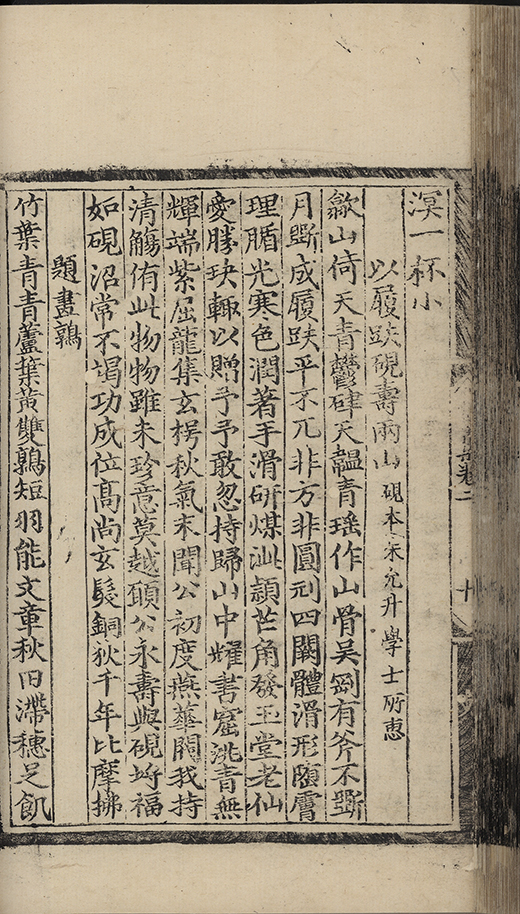 溟一杯小
以履趺硯壽兩山 硯本宋允升學士所惠
歙山倚天青鬱硉天韞青瑤作山骨吴剛有斧不斲
月斲成履趺平不兀非方非圓刓四闕體滑形墮膚
理腯光寒色潤著手滑研煤汕頴芒角發玉堂老仙
愛勝玦輙以贈予予敢忽持歸山中媸書窟洮青無
輝端紫屈龍集玄枵秋氣末聞公初度燕華閥我持
清觴侑此物物雖未珍意莫越願公永壽與硯埒福
如硯沼常不竭功成位髙尚玄髮銅狄千年比摩拂
題畫鶉
竹葉青青蘆葉黃雙鶉短羽能文章秋田滯穗足飢
卷二
十